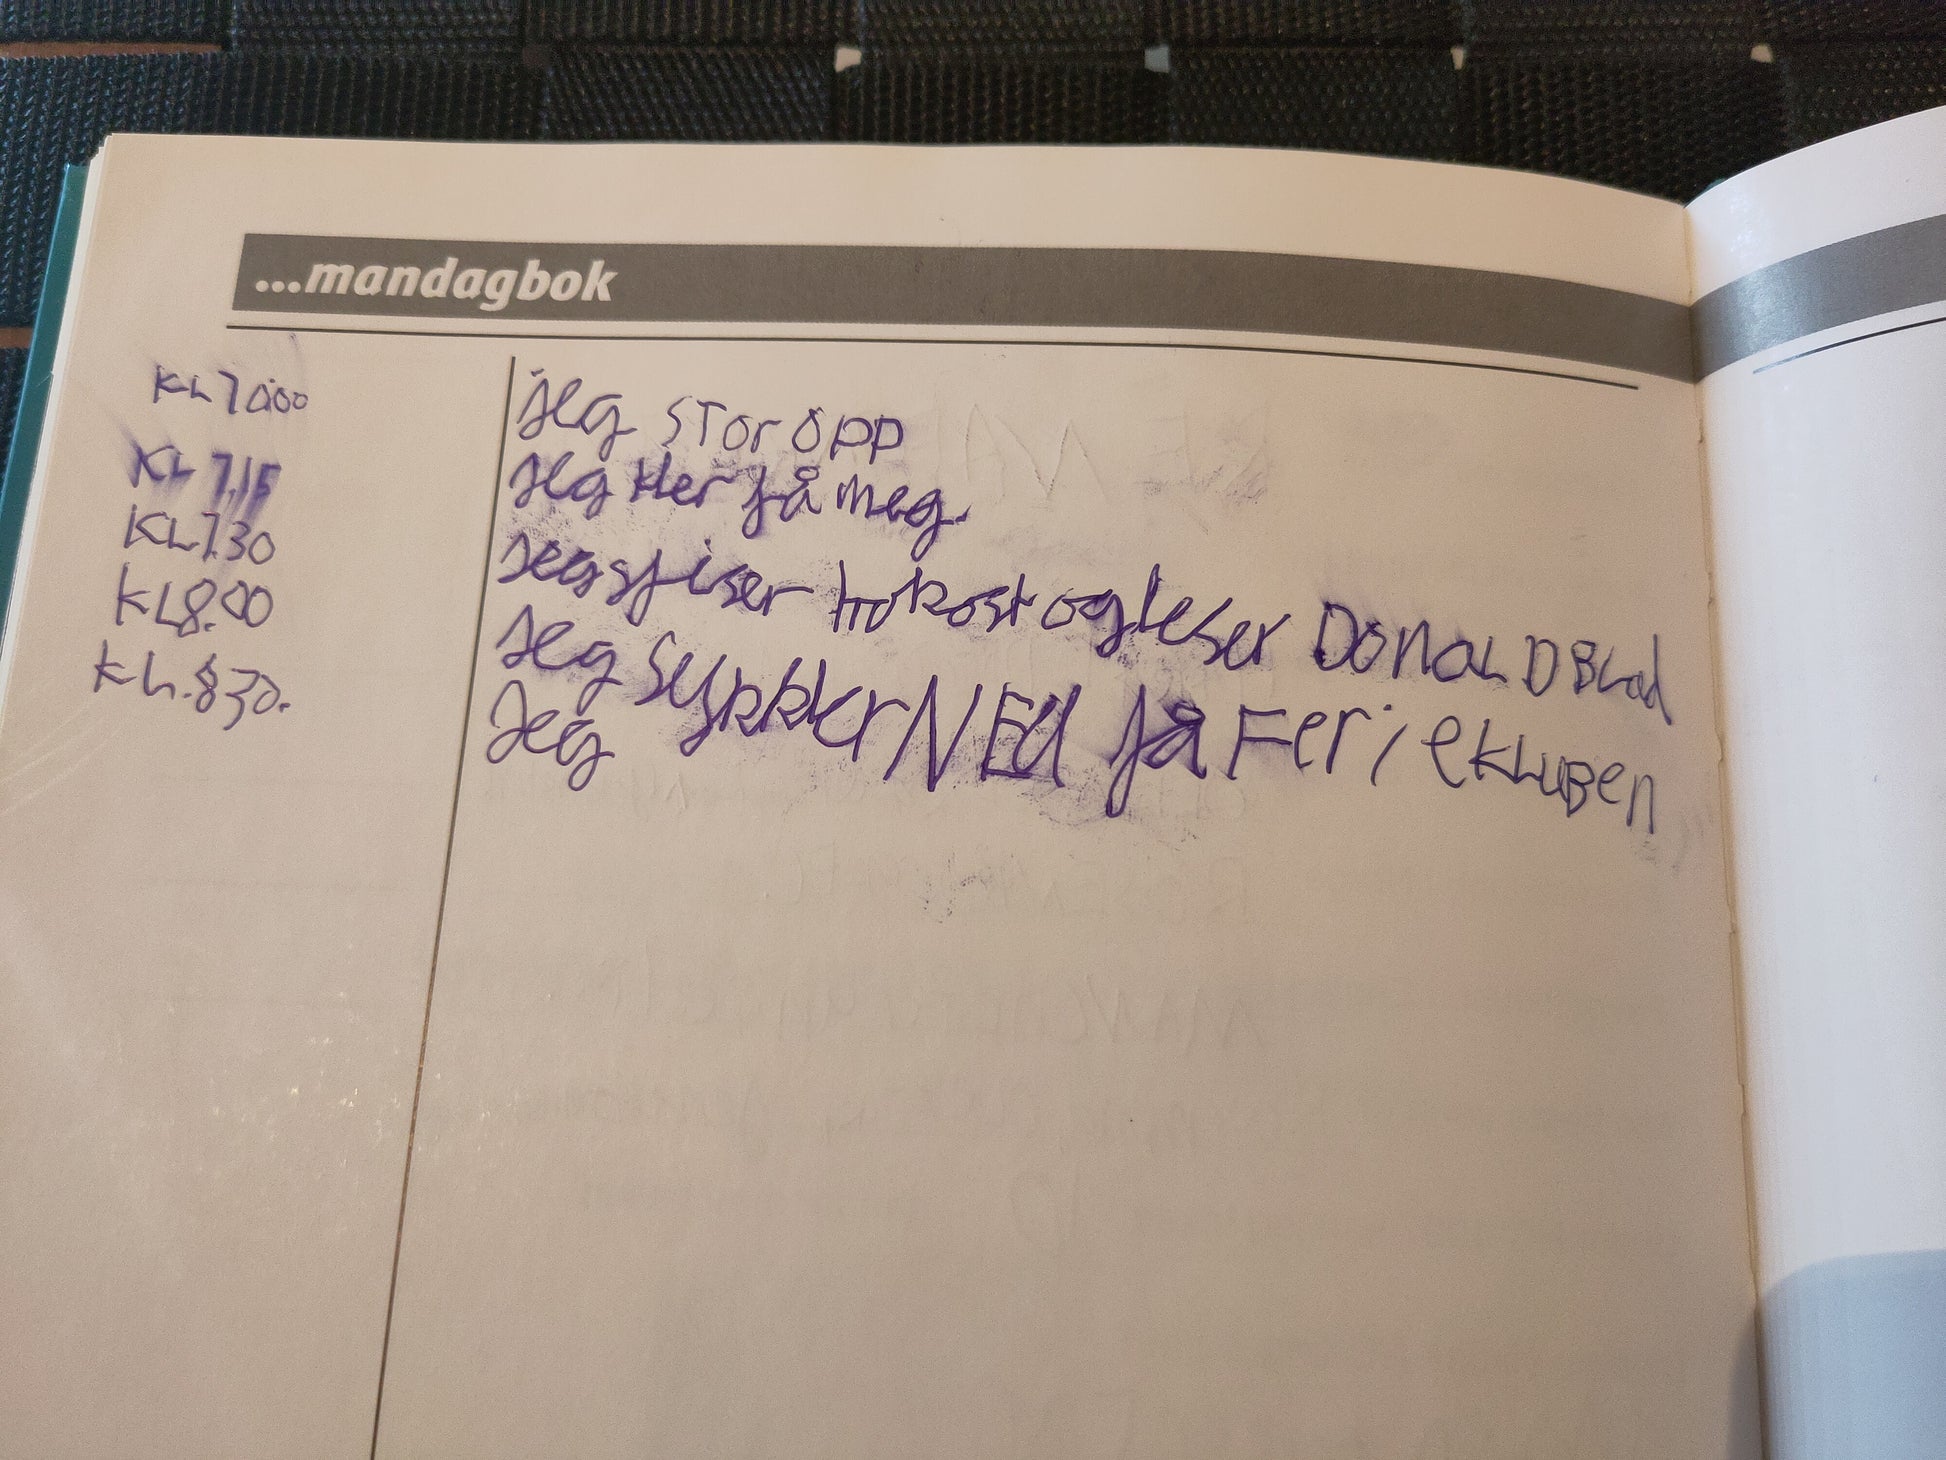 ...mandagbok
KL 7.000 jeg stor opp
KL 7.15 jeg kler på meg.
KL 7.30 jeg spiser frokost og leser DONALD BLad
KL 8.00 jeg sykkler NEd på Ferieklubben
KL. 830. jeg